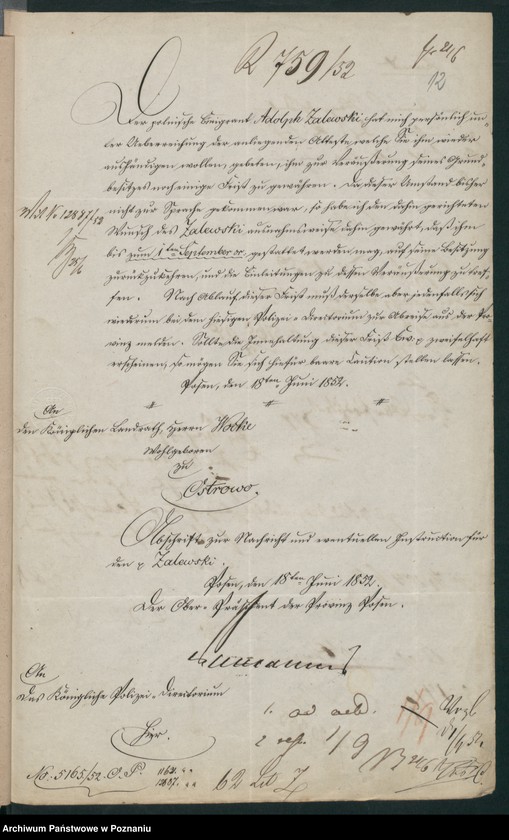 R 759/52
12
Der polnische Emigrant Adolph Zalewski hat mich persönlich un-
ter Ueberreichung der anliegenden Atteste, welche Sie ihm wieder
aushändigen wollen, gebeten, ihm zur Veräußerung seines Grund-
besitzes noch einige Frist zu gewähren. Da dieser Umstand bisher
nicht zur Sprache gekommen war, so habe ich den dahin gerichteten
Wunsch des Zalewski ausnahmsweise dahin gewährt, daß ihm
bis zum 1ten September cr. gestattet werden mag, auf seine Besitzung
zurückzukehren, und die Einleitungen zu dessen Veräußerung zu tref-
fen. Nach Ablauf dieser Frist muß derselbe aber jedenfalls sich
wiederum bei dem hiesigen Polizei-Directorium zur Abreise aus der Pro-
vinz melden. Sollte die Innehaltung dieser Frist Ew. p zweifelhaft
erscheinen, so mögen Sie sich hierfür baare Caution stellen lassen.
Posen, den 18ten Juni 1852.
An
den Königlichen Landrath, Herrn
Wohlgeboren
zu
Ostrowo.
Abschrift zur Nachricht und eventuellen Instruction für
den p Zalewski.
Posen, den 18ten Juni 1852.
Der Ober-Präsident der Provinz Posen.
An
das Königliche Polizei-Directorium
Hier.
No. 5165/52. O. P.
Archiwum Państwowe w Poznaniu
szukajwarchiwach.gov.pl